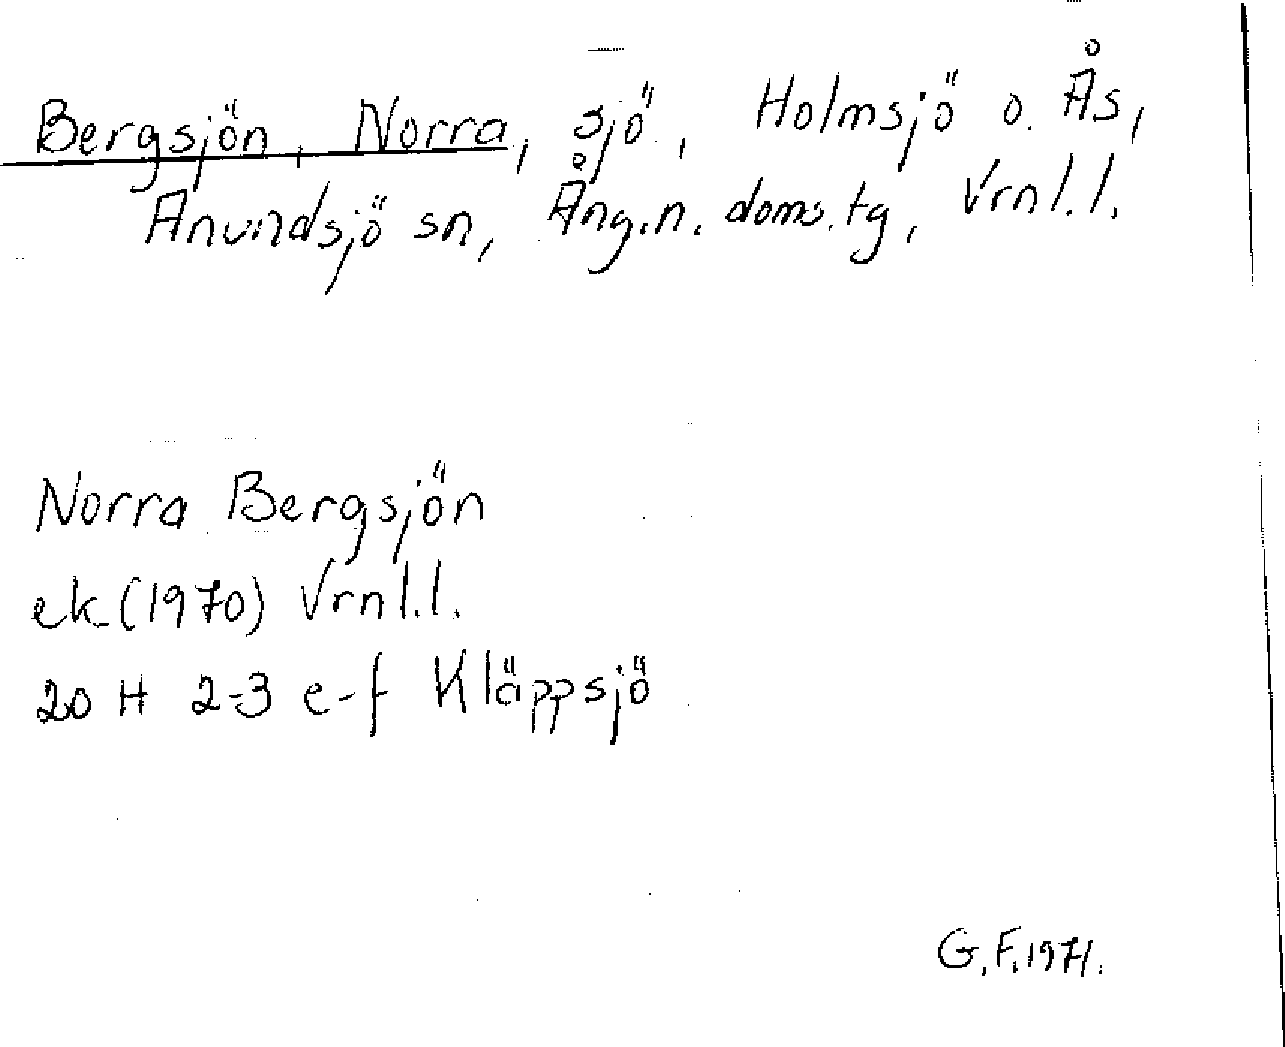 Bergsjön, Norra, sjö, Holmsjö o. Ås,
Anundsjö sn, Ång.n. doms.tg, Vrnl.l.
Norra Bergsjön
ek (1970) Vrnl.l.
20 H 2-3 e-f Kläppsjö
G.F. 1971.